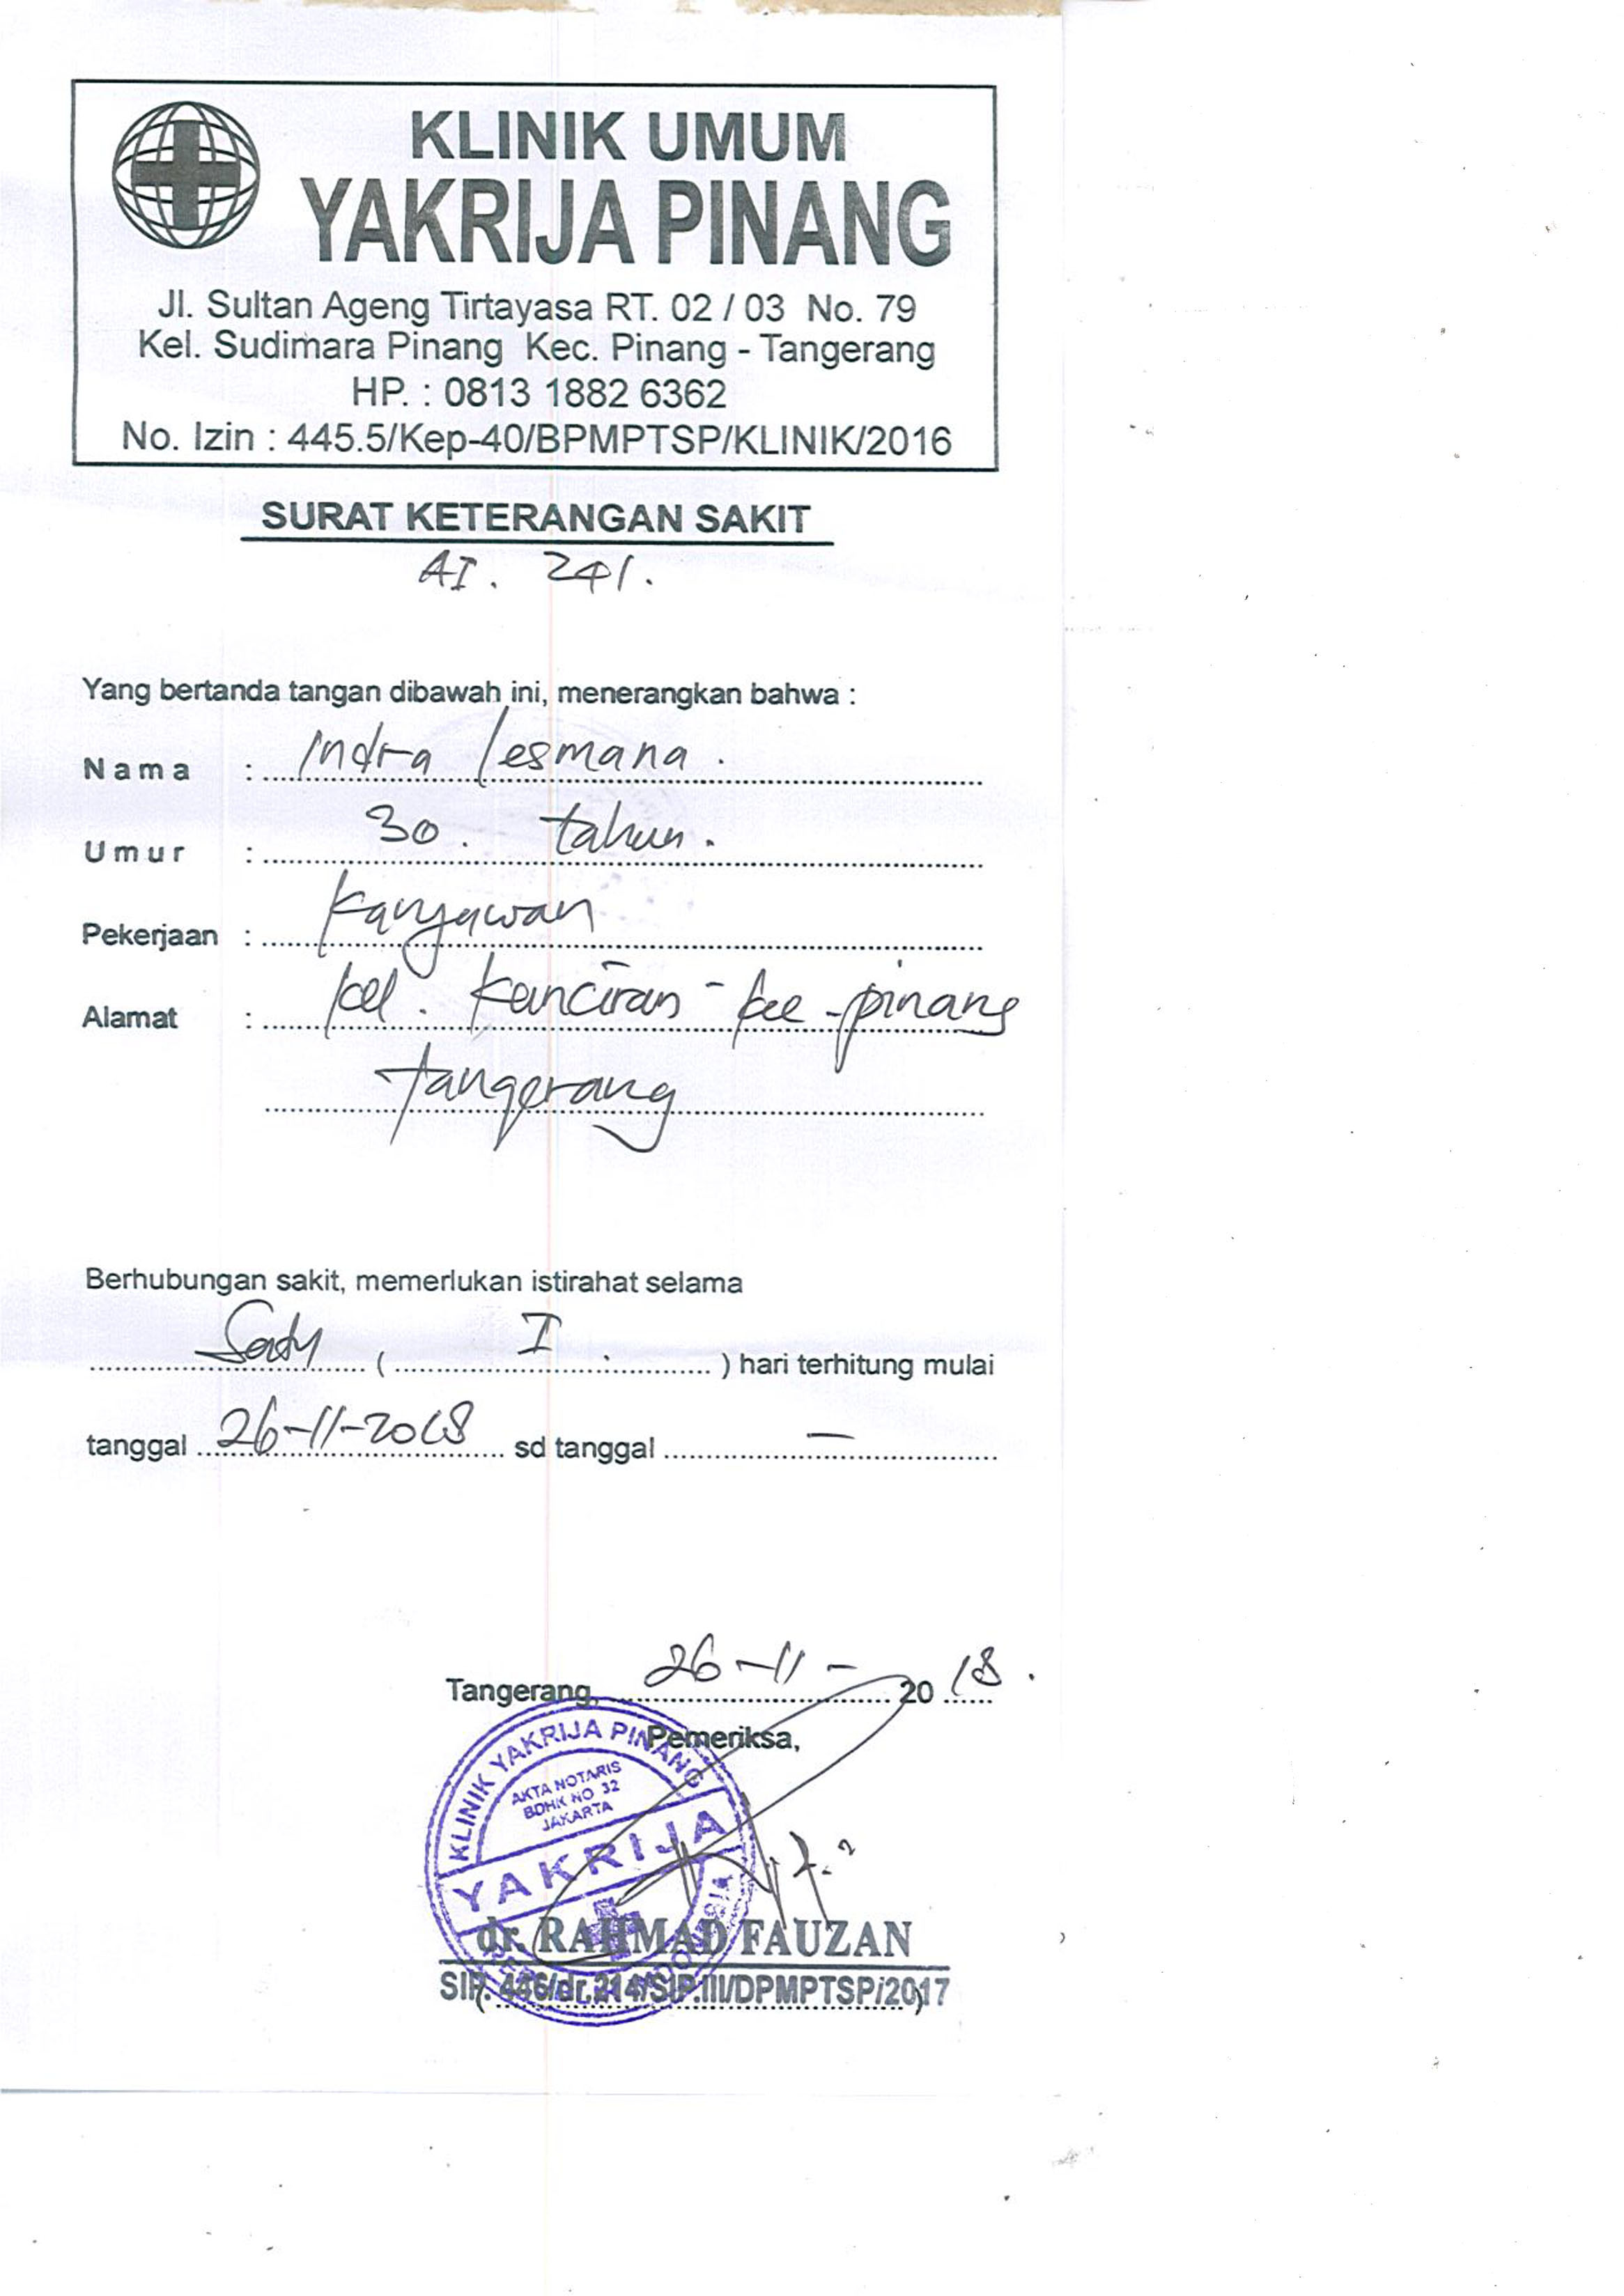 KLINIK UMUM
YAKRIJA PINANG
Jl. Sultan Ageng Tirtayasa RT. 02 / 03 No. 79
Kel. Sudimara Pinang Kec. Pinang - Tangerang
HP. : 0813 1882 6362
No. Izin : 445.5/Kep-40/BPMPTSP/KLINIK/2016
SURAT KETERANGAN SAKIT
AI. 241.
Yang bertanda tangan dibawah ini, menerangkan bahwa :
Nama : Indra lesmana.
Umur : 30. tahun.
Pekerjaan : Karyawan
Alamat : kel. kunciran - kec - pinang
tangerang
Berhubungan sakit, memerlukan istirahat selama
Satu ( I . ) hari terhitung mulai
tanggal 26-11-2018 sd tanggal —
Tangerang, 26-11- 20 18.
Pemeriksa,
KLINIK YAKRIJA PINANG
AKTA NOTARIS
BDHK NO 32
JAKARTA
YAKRIJA
dr. RAHMAD FAUZAN
SIP. 446/dr.214/SIP.III/DPMPTSP/2017